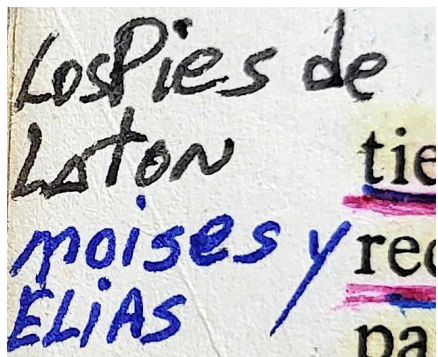 LosPies de
LatoN
moises y
ELiAS
tie
rec
pa